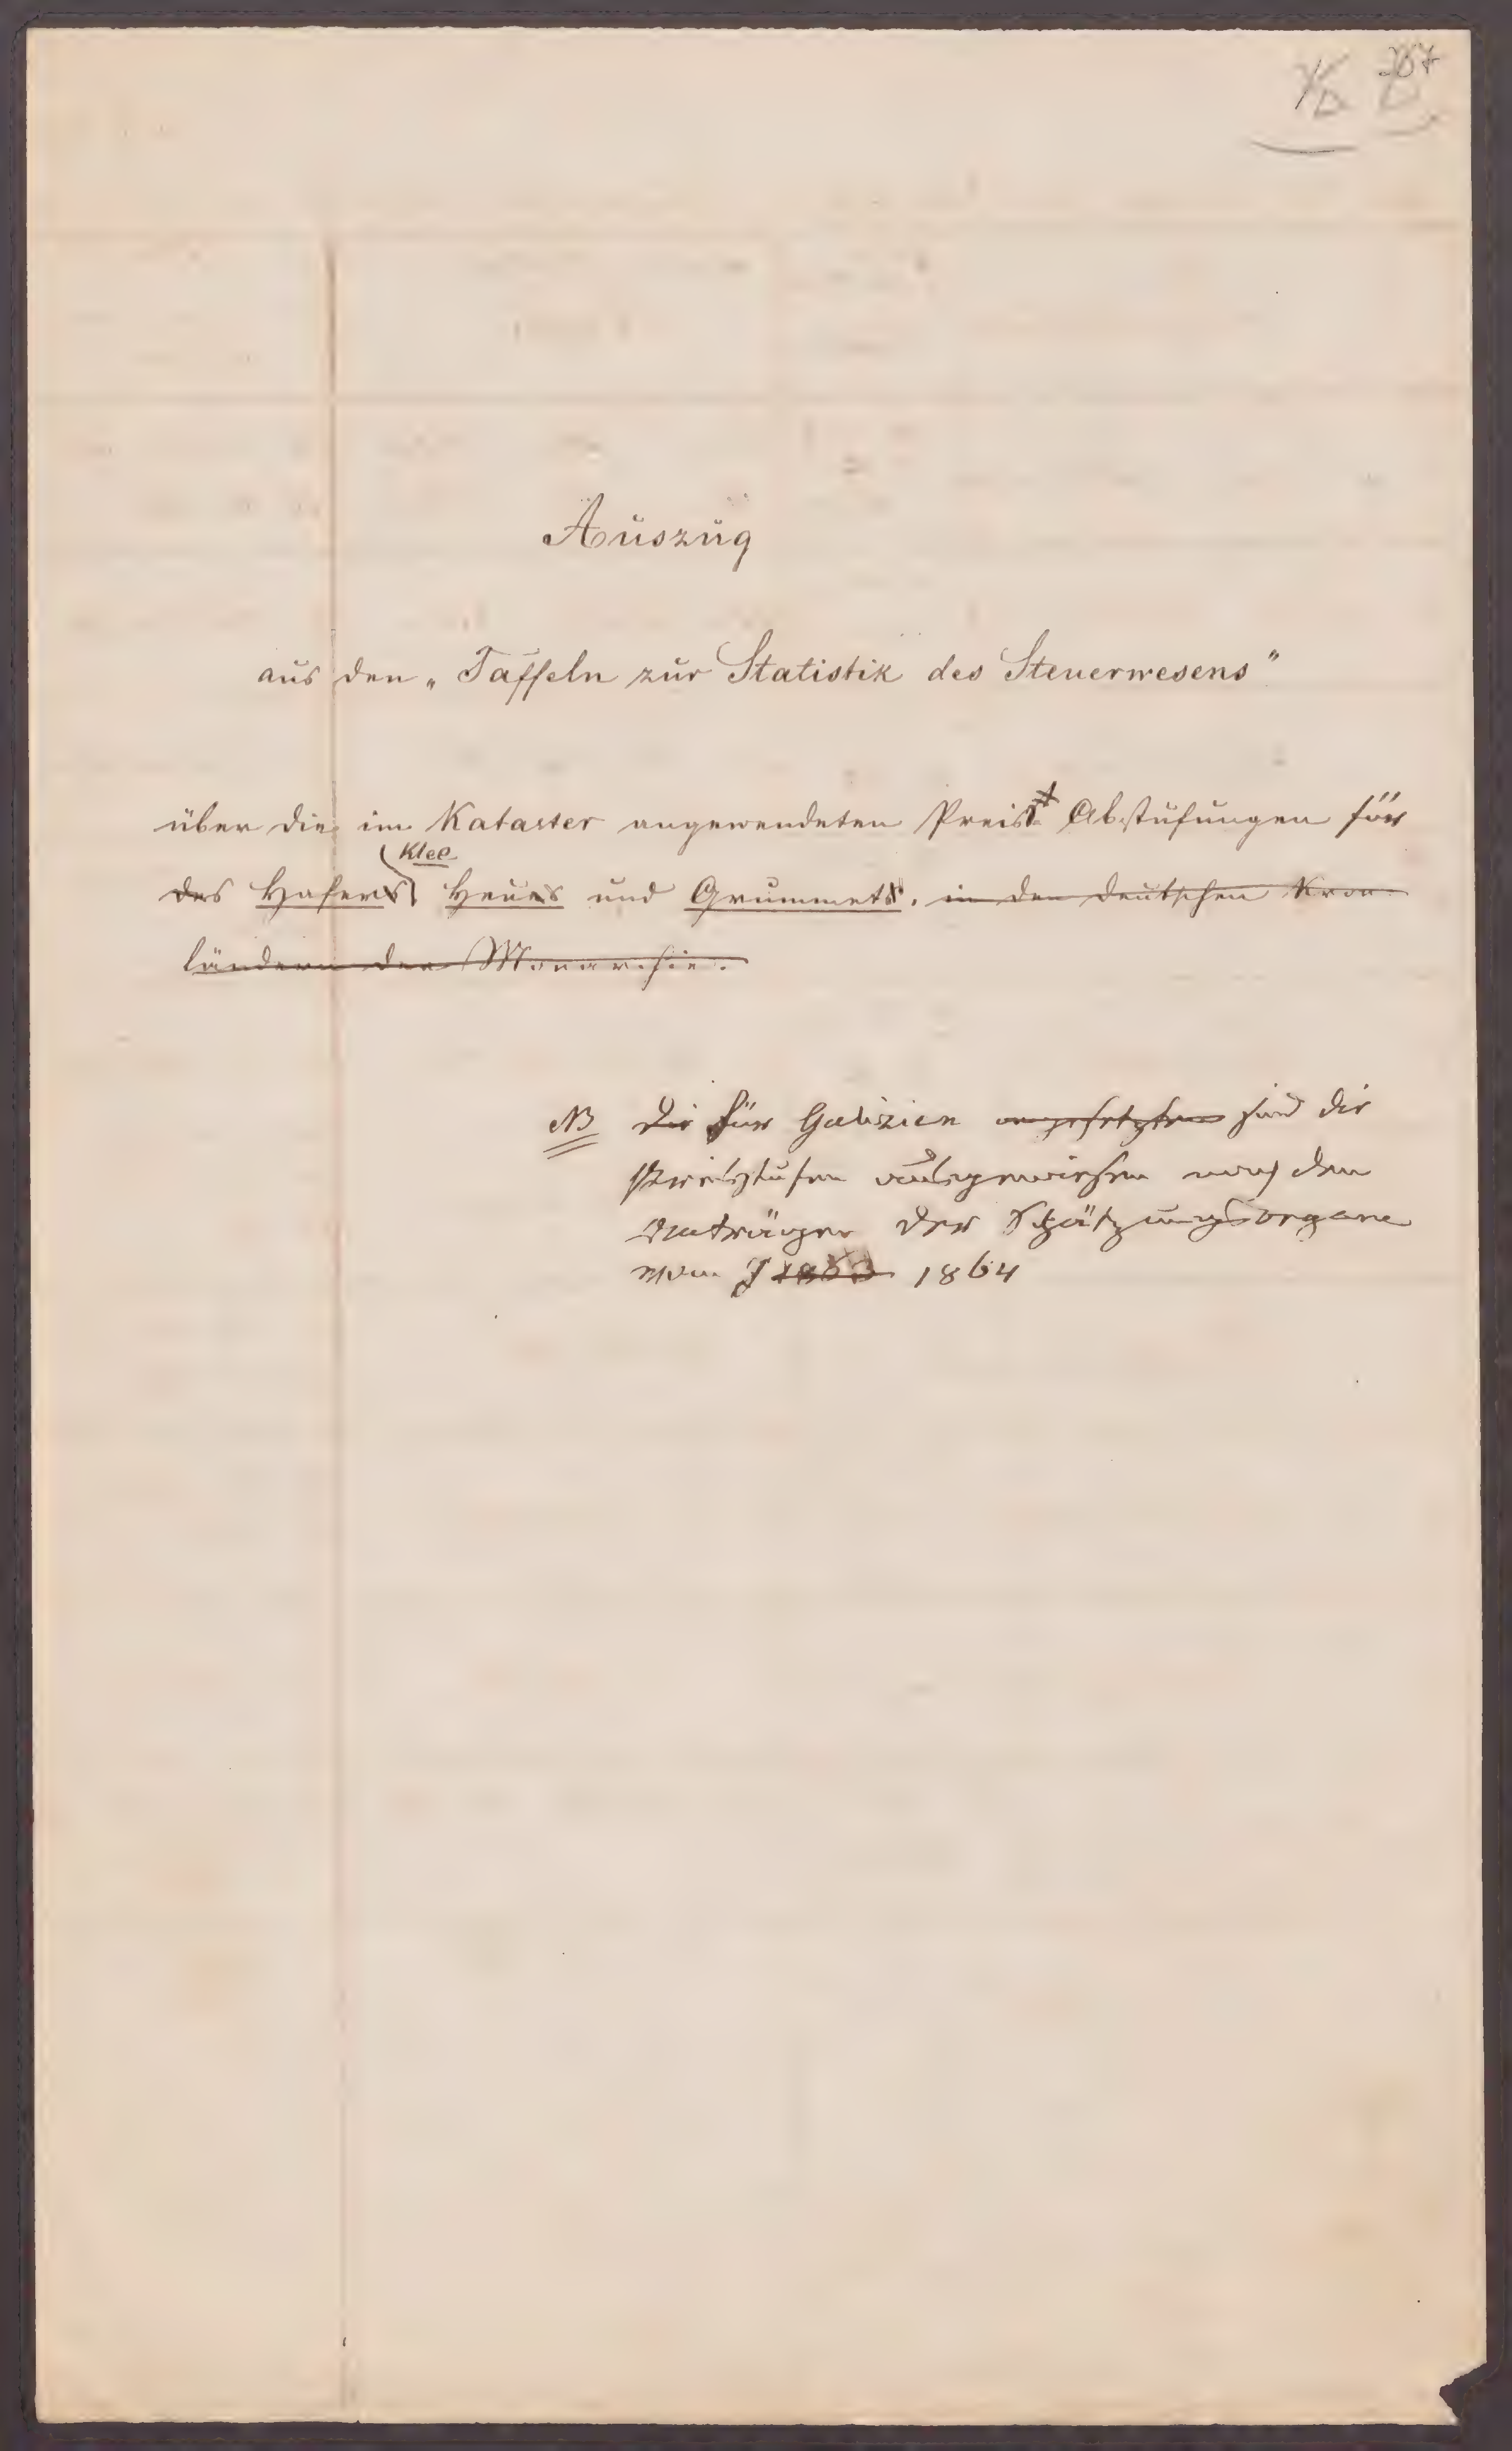 267
Auszug
aus den „Tafseln zur Statistik des Steuerwesens"
über die im Kataster angewendeten Preis Abstufungen für
Klee
des Hafers Heues und Grummets. in den deutschen Kron-
ländern der Monarchie.
NB Die für Galizien angesetzten sind die
Preisstufen ausgewiesen nach den
Anträgen der Schätzungsorgane
vom J 1863 1864